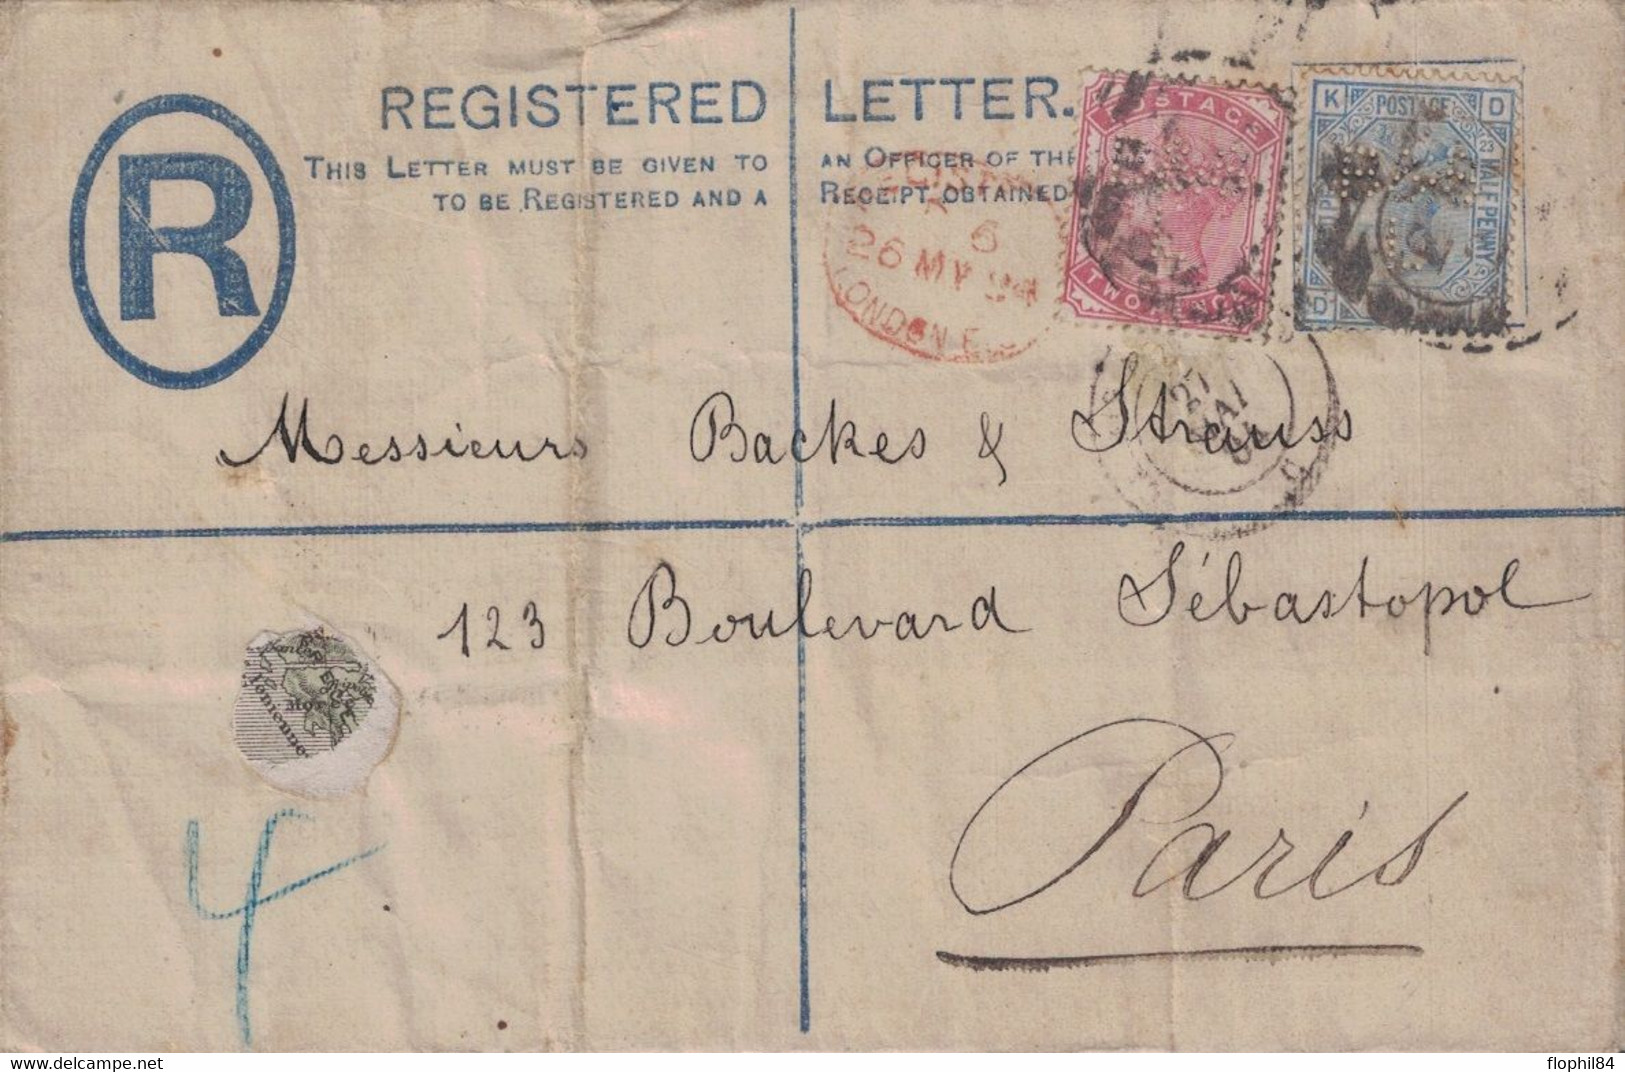 REGISTERED LETTER.
THIS LETTER MUST BE GIVEN TO AN OFFICER OF THE
TO BE REGISTERED AND A RECEIPT OBTAINED
R
6
26 MY 94
LONDON E.
POSTAGE
K POSTAGE D
23
HALF PENNY
27
MAI
Messieurs Backes & Strauss
123 Boulevard Sébastopol
Paris
4
delcampe.net
flophil84